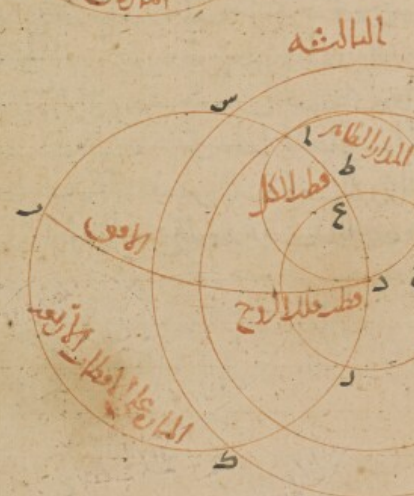 الثالثه
س
ا
المدار الظاهر
ط
قطب الكل
ع
ب
الافق
د
قطب فلك البروج
المارة على الاقطاب الأربعة
ر
ك